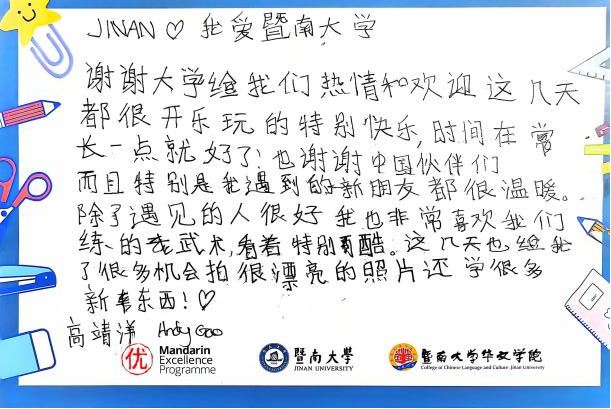 JINAN ♡ 我爱暨南大学
谢谢大学给我们热情和欢迎 这几天
都很开乐玩的特别快乐,时间在常
长一点就好了!也谢谢中国伙伴们
而且特别是我遇到的新朋友都很温暖。
除了遇见的人很好 我也非常喜欢我们
练的 武术,看着特别 酷。这几天也给我
了很多机会拍很漂亮的照片还 学很多
新 东西!♡
高靖洋 Andy Gao
优 Mandarin
Excellence
Programme
暨南大學
JINAN UNIVERSITY
暨南大学华文学院
College of Chinese Language and Culture Jinan University